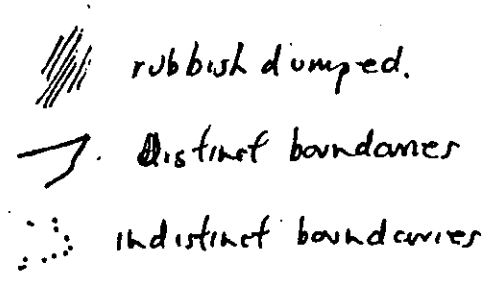 rubbish dumped.
distinct boundaries
indistinct boundaries